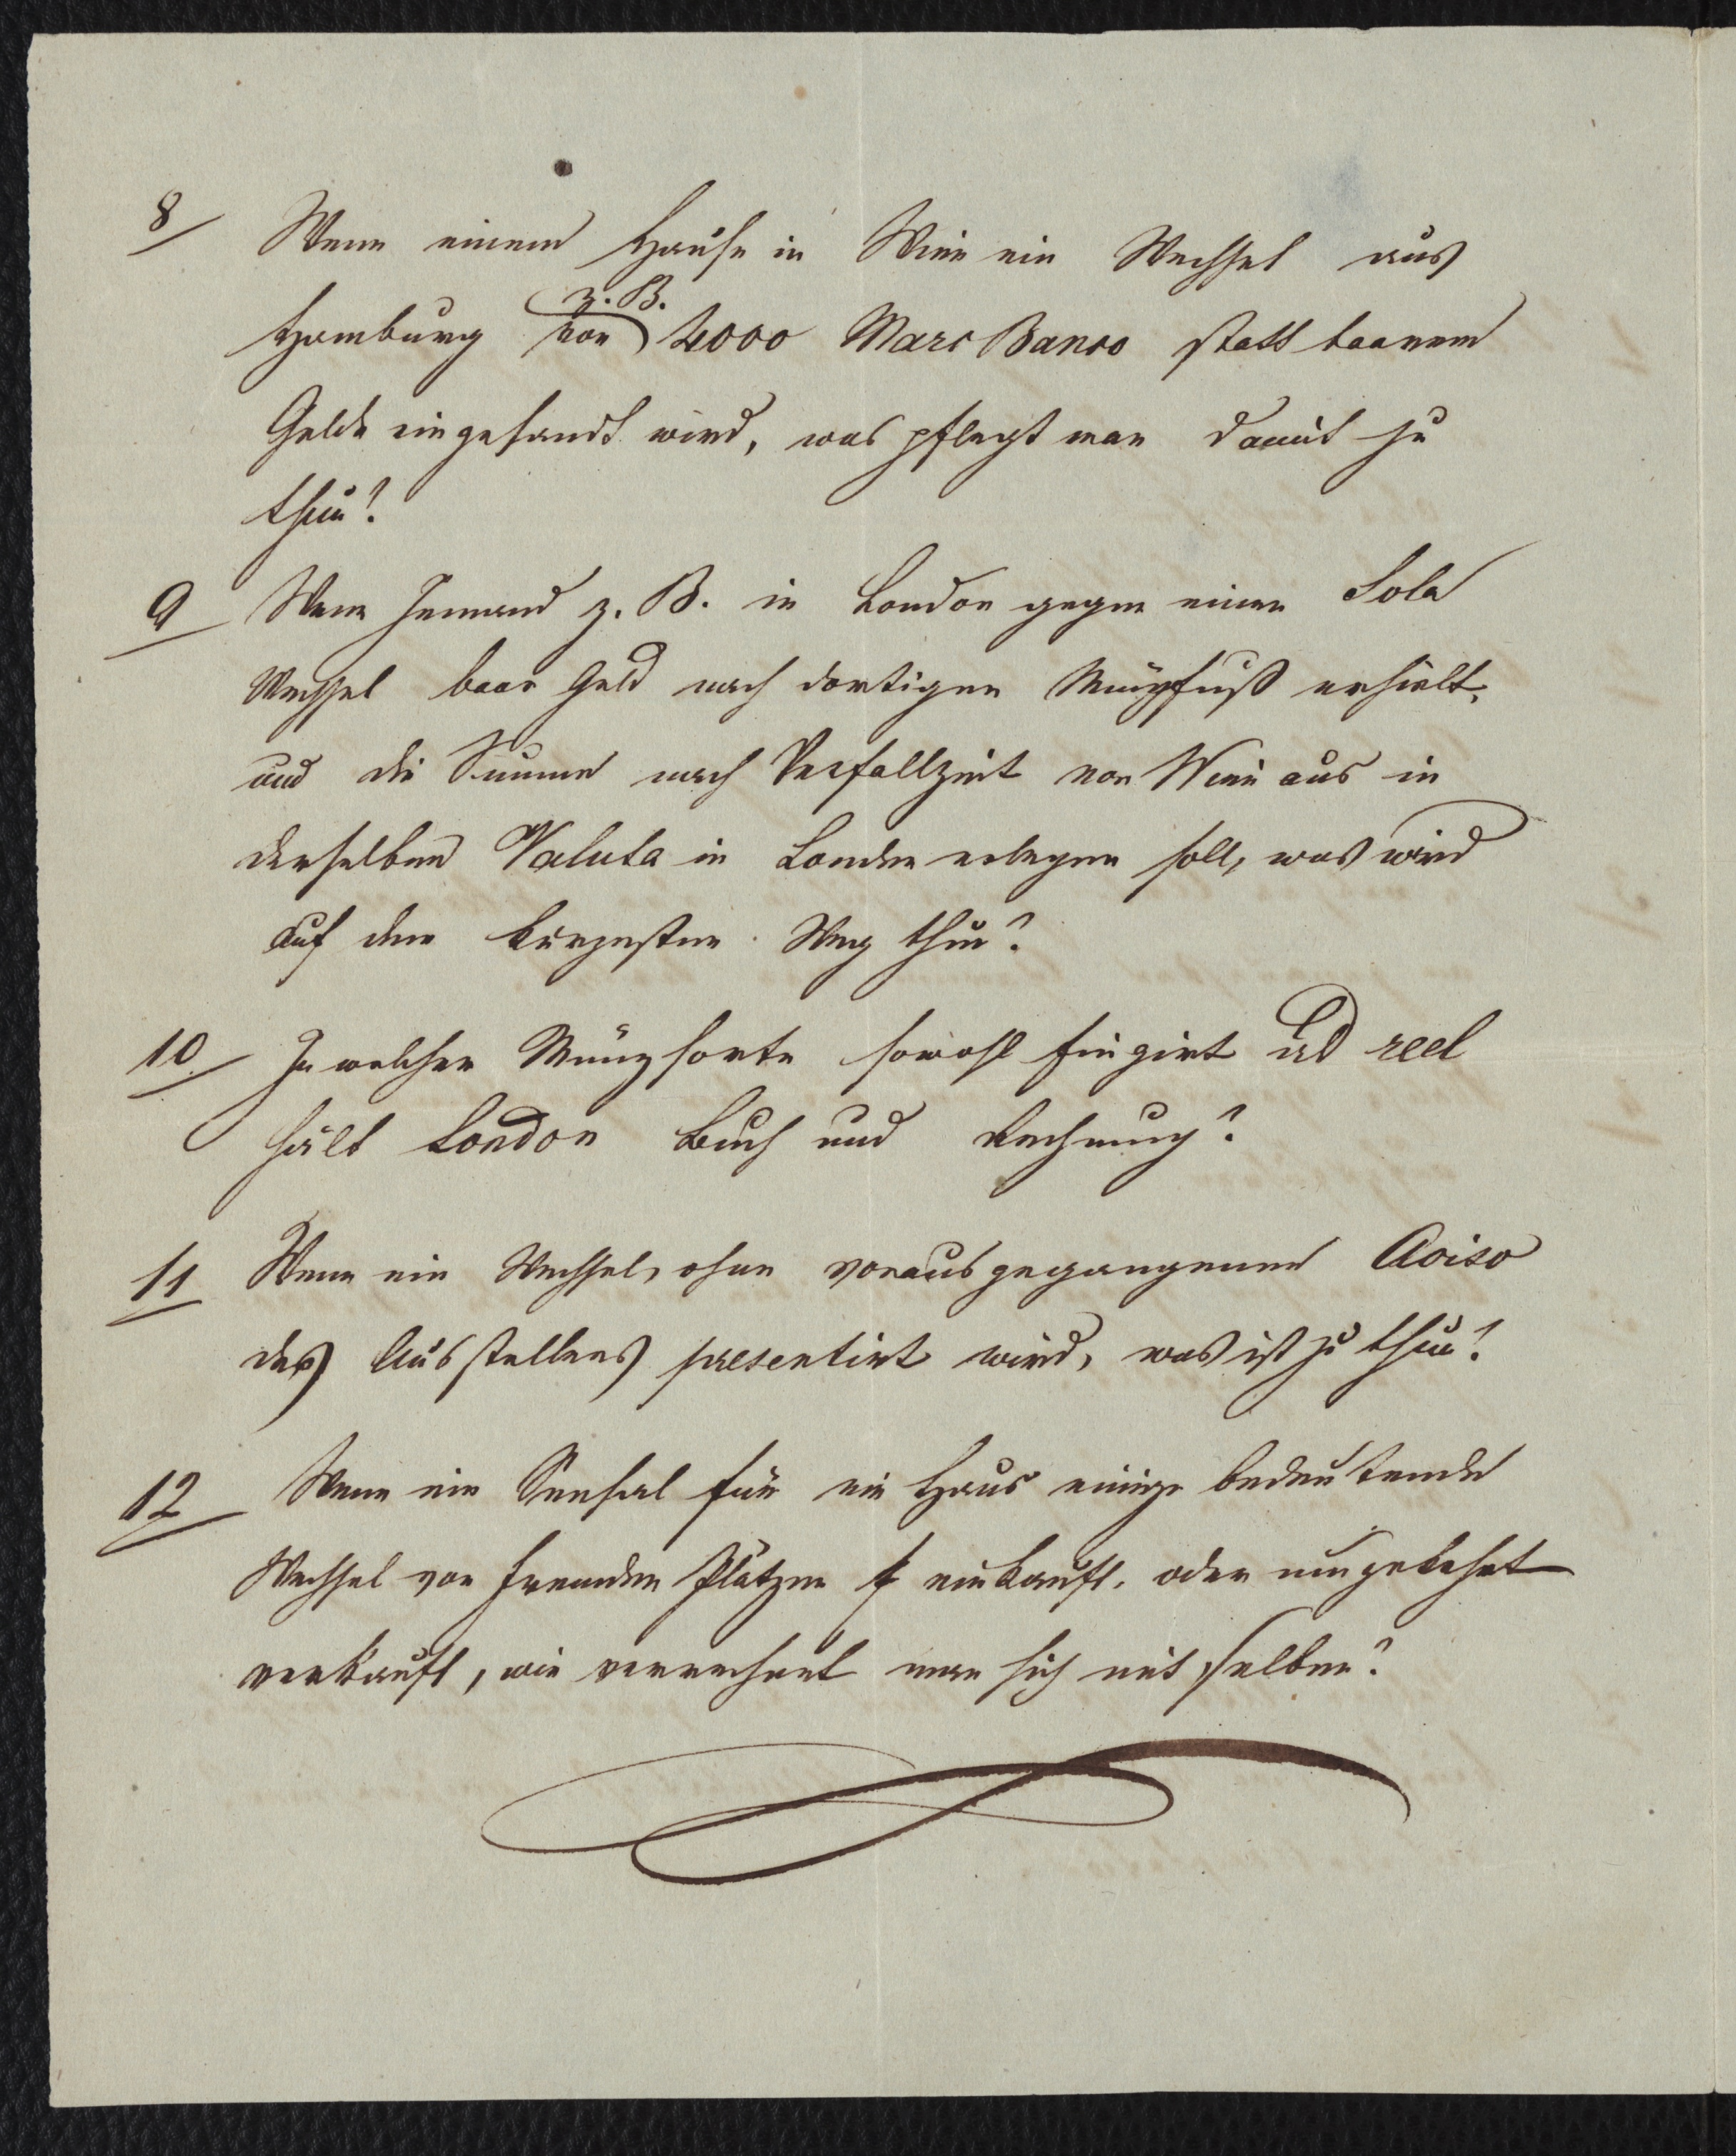 8/ Wenn einem Hause in Wien ein Wechsel aus
z. B.
Hamburg von 4000 Marc Banco statt baarem
Gelde eingesandt wird, was pflegt man damit zu
thun?
9/ Wenn Jemand z. B. in London gegen einen Sola
Wechsel baar Geld nach dortigen Münzfuß erhielt,
und die Summe nach Verfallzeit von Wien aus in
derselben Valuta in London erlegen soll, was wird
auf dem kürzesten Weg thun?
10/ In welcher Münzsorte sowohl fingirt und reel
hält London Buch und Rechnung?
11/ Wenn ein Wechsel, ohne vorausgegangenen Aviso
des Ausstellers presentirt wird, was ist zu thun?
12/ Wenn ein Sensal für ein Haus einige bedeutende
Wechsel von fremden Plätzen einkauft, oder umgekehrt
verkauft, wie verrechnet man sich mit selben?